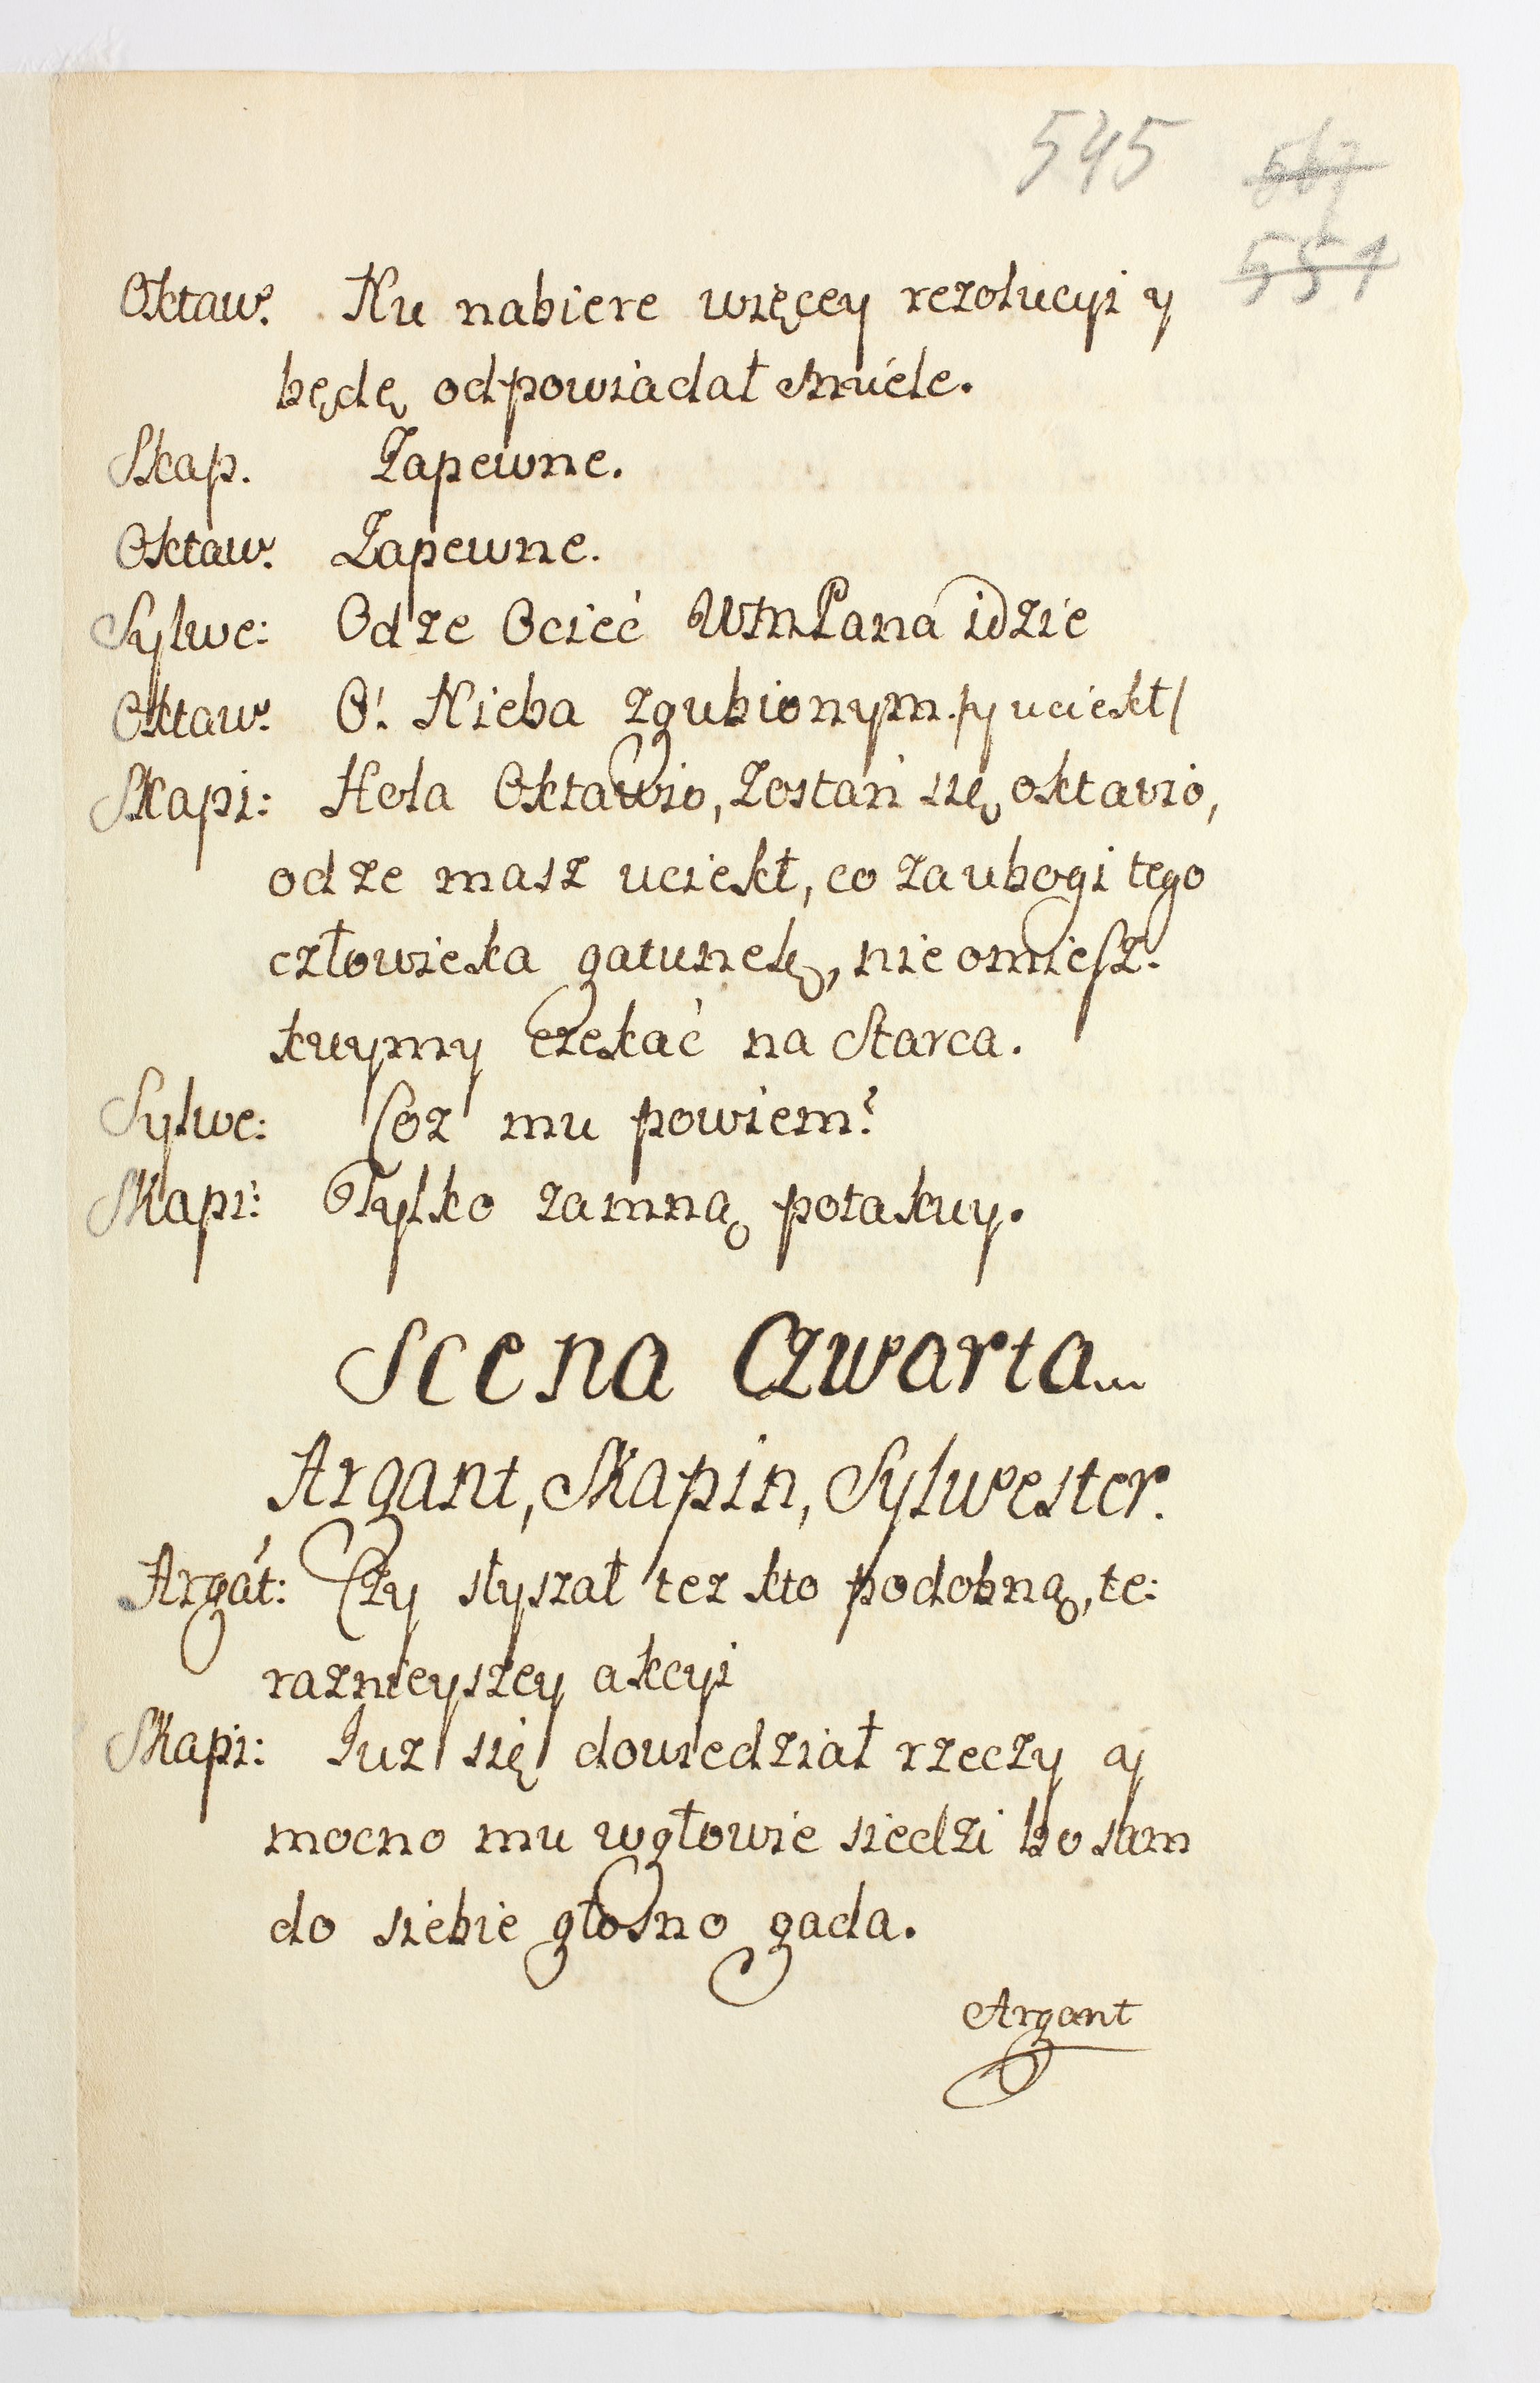 545 567
551
Oktaw: Nu nabiere więcey rezolucyi y
będę odpowiadał smiele.
Skap. Zapewne.
Oktaw: Zapewne.
Sylwe: Odze Ocieć WmPana idzie
Oktaw: O! Nieba zgubionym. /y uciekł/
Skapi: Hola Oktawio, Zostań się oktavio,
odze masz uciekł, co za ubogi tego
człowieka gatunek, nie omiesz:
kuymy czekać na Starca.
Sylwe: Coz mu powiem?
Skapi: Tylko zamną potakuy.
Scena Czwarta
Argant, Skapin, Sylwester.
Argāt: Czy słyszał tez kto podobną, te:
raznieyszey akcyi
Skapi: Juz się dowiedział rzeczy y
mocno mu wgłowie siedzi bo sam
do siebie głosno gada.
Argant